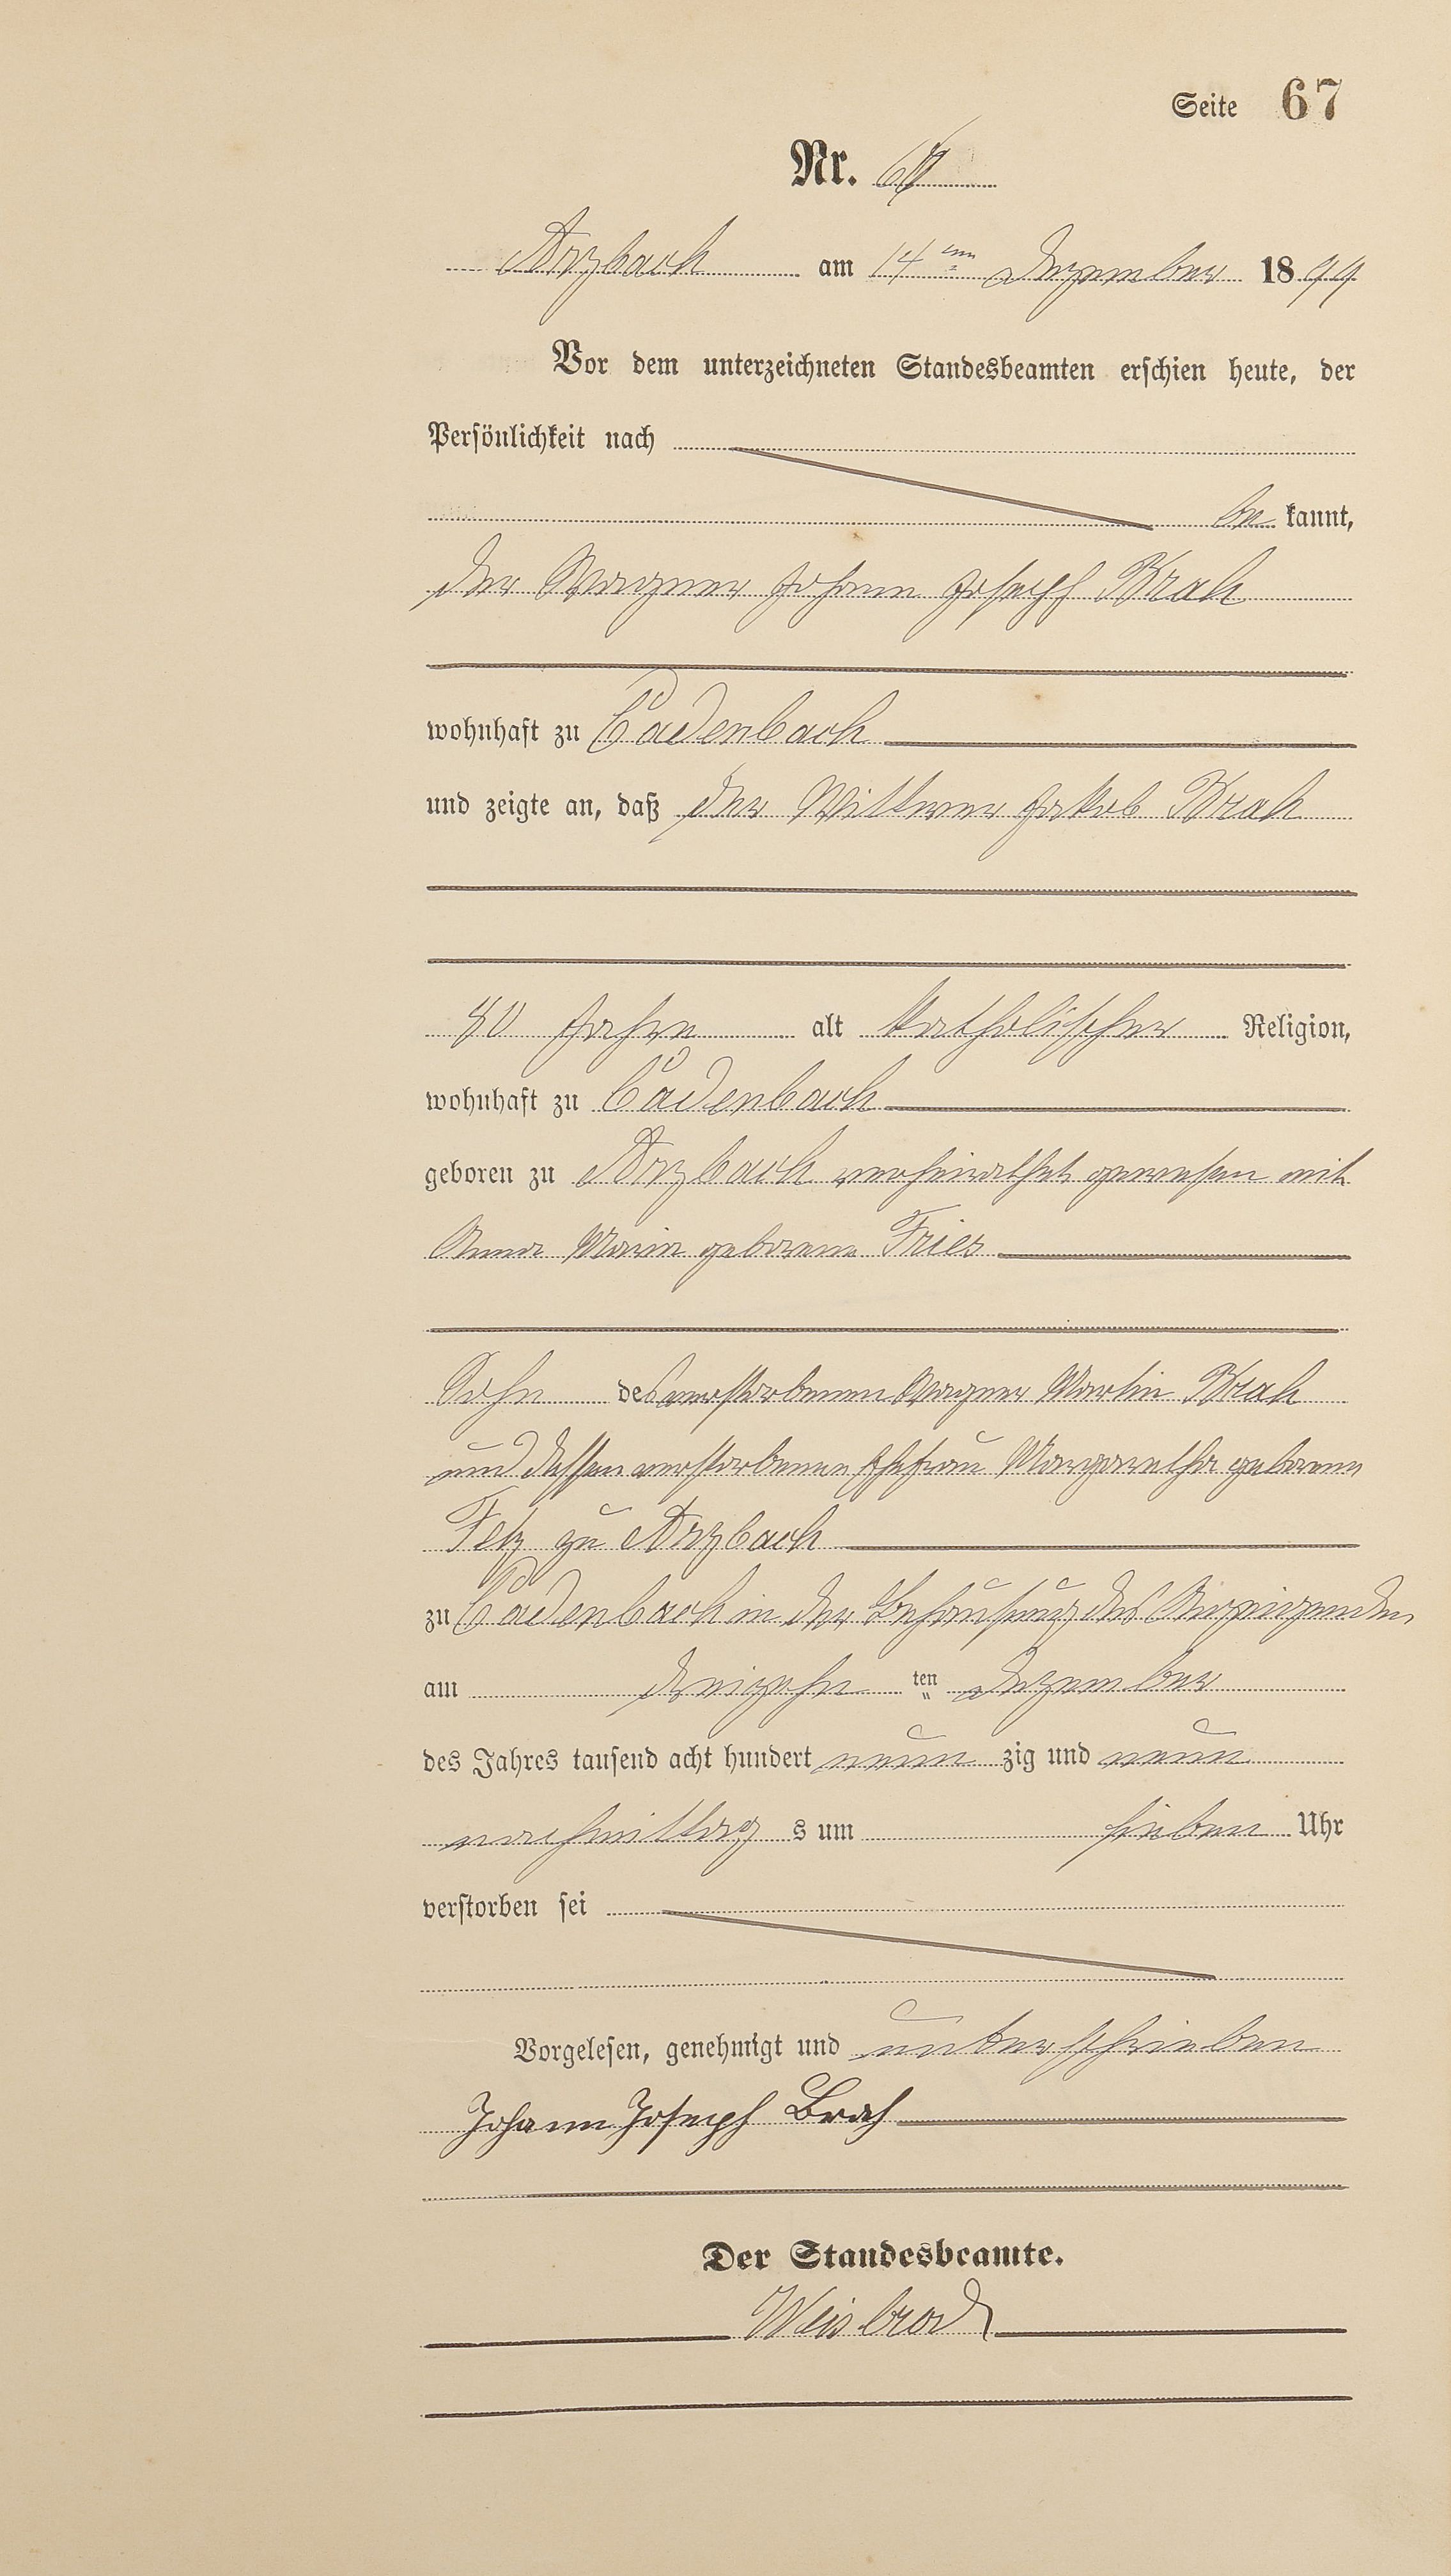 Seite 67
Nr.
Arzbach am 14ten Dezember 1899
Vor dem unterzeichneten Standesbeamten erschien heute, der
Persönlichkeit nach
be kannt,
der Wagner Johann Joseph Brah
wohnhaft zu Cadenbach
und zeigte an, daß der Wittwer Jakob Brah
80 Jahre alt katholischer Religion,
wohnhaft zu Cadenbach
geboren zu Arzbach verheirathet gewesen mit
Anna Maria geborene Fries
Sohn des verstorbenen Wagner Martin Brah
und dessen verstorbenen Ehefrau Margaretha geborene
zu Arzbach
zu Cadenbach in der Behausung des Anzeigenden,
am dreizehn ten Dezember
des Jahres tausend acht hundert neun zig und neun
nachmittag s um sieben Uhr
verstorben sei
Vorgelesen, genehmigt und unterschrieben
Johann Joseph Brah
Der Standesbeamte.
Weisbrod